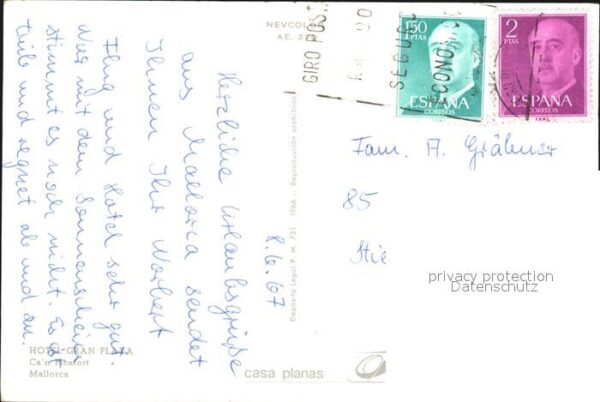 NEVCOLOR
AE.
GIRO POST
SEGURO
ECONOM
1'50
PTAS
ESPAÑA
CORREOS
2
PTAS
ESPAÑA
CORREOS
8.6.67
Herzliche Urlaubsgrüße
aus Mallorca sendet
Ihnen Ihr Norbert
Flug und Hotel sehr gut.
Nur mit dem Sonnenschein
stimmt es noch nicht. Es ist
trüb und regnet ab und an.
Fam. A. Gräbner
85
privacy protection
Datenschutz
Depósito Legal P. M. 731 - 1966 - Reproducción prohibida
HOTEL GRAN PLAYA
Ca'n Picafort
Mallorca
casa planas